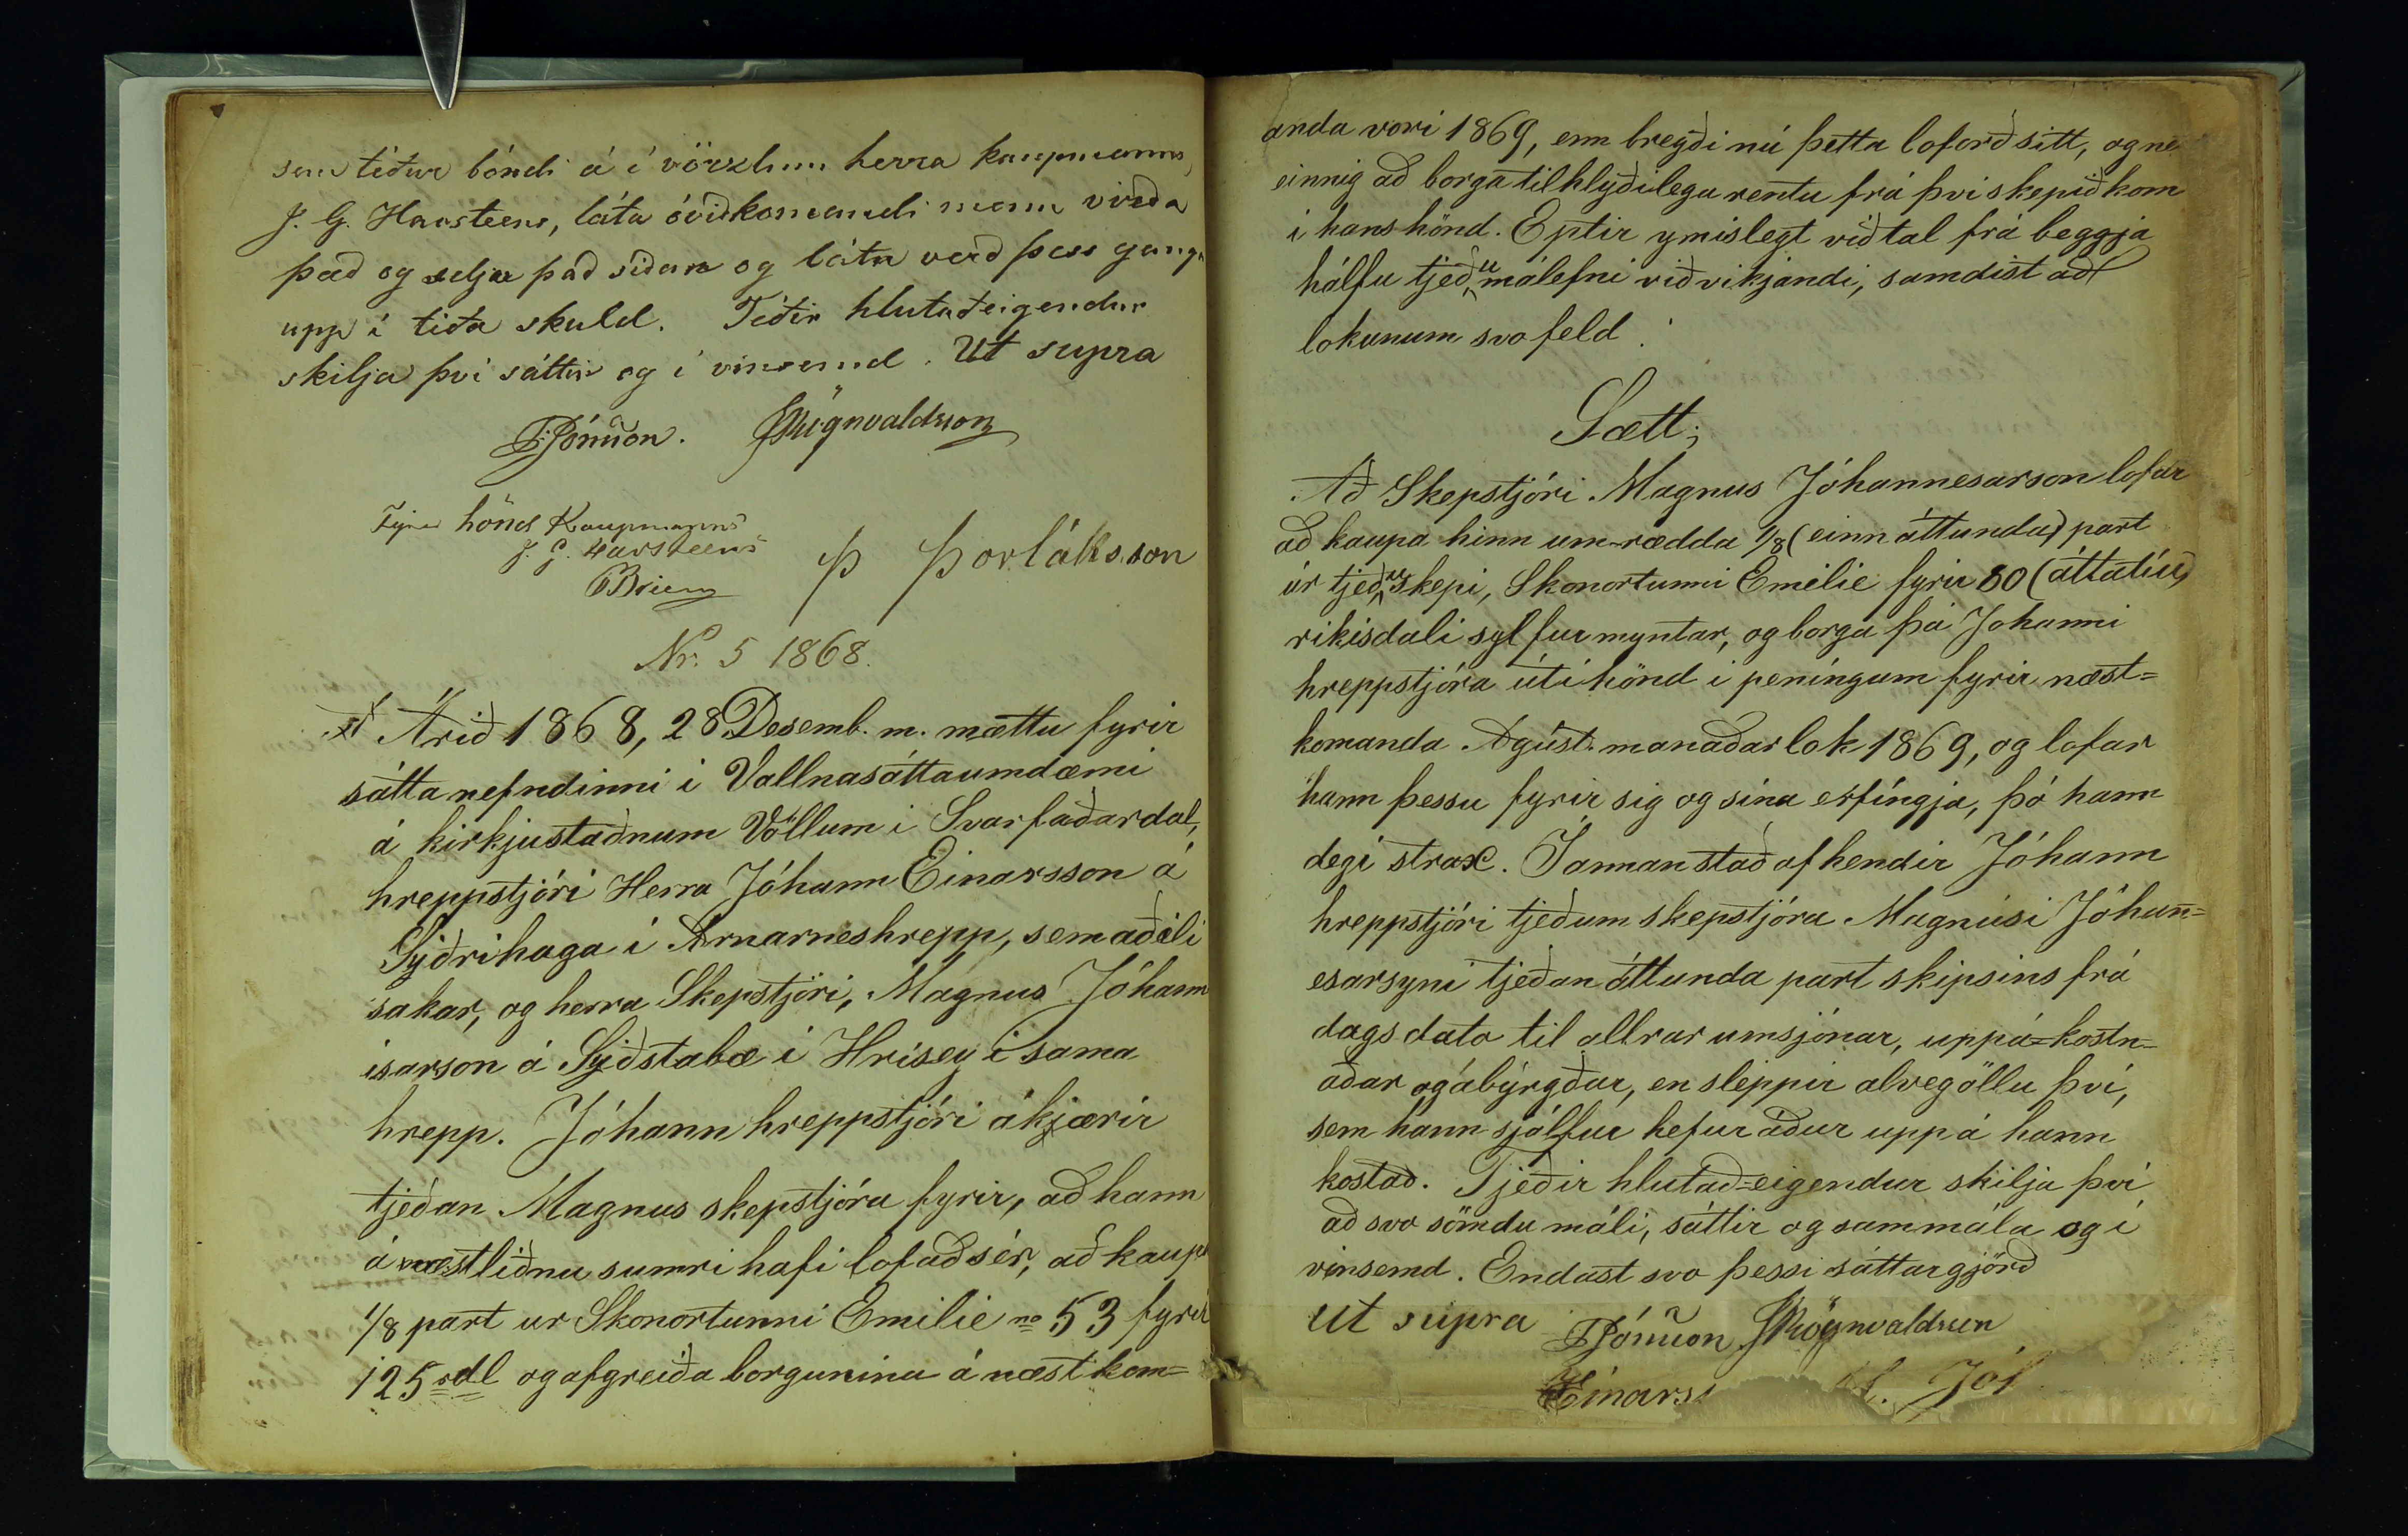 sem téður bóndi á í vörzlum herra kaupmanns
J. G. Havsteens, láta óviðkomandi menn virða
það og selja það síðan og láta verð þess ganga
upp í téða skuld. Téðir hlutaðeigendur
skilja því sáttir og í vinsemd. Ut supra
JRögnvaldsson
Fyrir hönd Kaupmanns
J. G. Havsteens
Briem
Þ Þorláksson
Nr. 5 1868.
Árið 1868, 28 Desemb. m. mættu fyrir
sátta nefndinni i Vallnasáttaumdæmi
á kirkjustaðnum Völlum i Svarfaðardal,
hreppstjóri Herra Jóhann Einarsson á
Syðrihaga í Arnarneshrepp, sem aðili
sakar, og herra Skepstjóri, Magnus Jóhann
isarson á Syðstabæ i Hrísey i sama
hrepp. Jóhann hreppstjóri ákjærir
tjeðan Magnus skepstjóra fyrir, að hann
á næstliðnu sumri hafi lofað sér, að kaupa
1/8 part ur Skonortunni Emilie no 53 fyrir
125 rdl og afgreiða borgunina á næst kom=
anda vori 1869, enn bregði nú þetta loforð sitt, og ne
einnig að borga tilhlýðilega rentu frá þvi skepið kom
i hans hönd. Eptir ymislegt viðtal frá beggja
hálfu tjeðu málefni viðvikjandi, samdist að
lokunum svofeld:
Sætt;
Að Skepstjóri Magnus Jóhannesarson lofar
að kaupa hinn um-rædda 1/8 (einn áttunda) part
úr tjeðu skepi, Skonortunni Emilie fyrir 80 (áttatíu)
rikisdali sylfurmyntar, og borga þá Johanni
hreppstjóra útíhönd i peníngum fyrir næst=
komanda Agúst. manaðarlok 1869, og lofar
hann þessu fyrir sig og sína erfíngja, þó hann
degi strax. I annan stað afhendir Jóhann
hreppstjóri tjeðum skepstjóra Magnúsi Jóhan=
esarsyni tjeðan áttunda part skipsins frá
dags dato til allrar umsjónar, uppá=kostn=
aðar og ábýrgðar, en sleppir alveg öllu því,
sem hann sjálfur hefur áður uppá hann
kostað. Tjeðir hlutað=eigendur skilja því
að svo sömdu máli, sáttir og sammála og í
vinsemd. Endast svo þessi sáttargjörð
Ut supra JRögnvaldsson
Einars M. Jóh